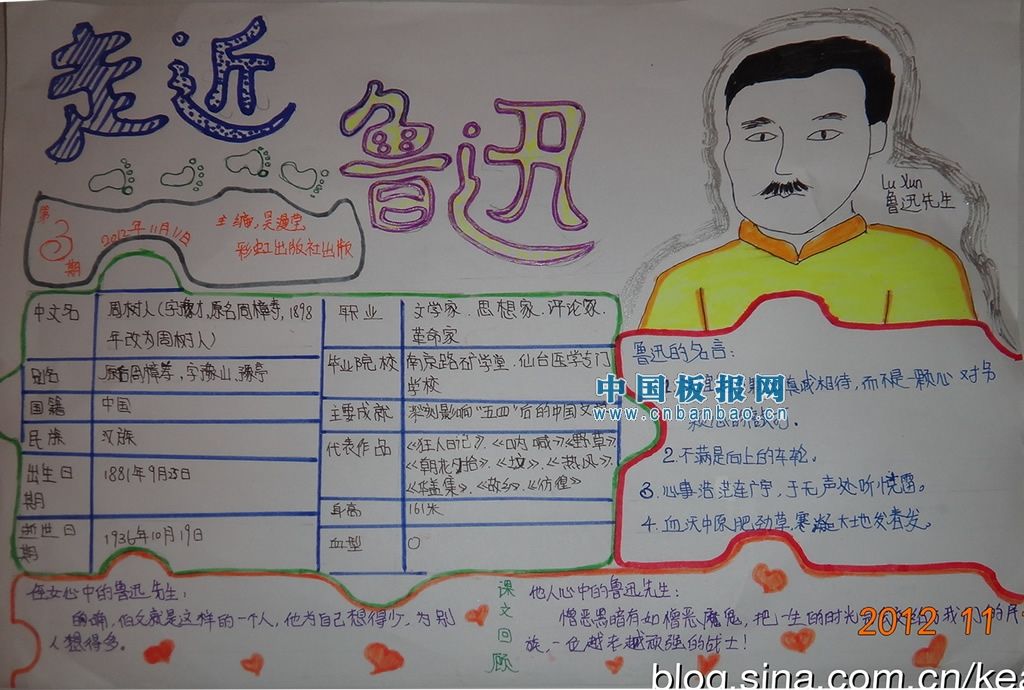 走近
鲁迅
第3期
2012年11月11日
主编:吴漫莹
彩虹出版社出版
Lu Xun
鲁迅先生
中文名
周树人(字豫才,原名周樟寿,1898
年改为周树人)
别名
原名周樟寿,字豫山、豫亭
国籍
中国
民族
汉族
出生日期
1881年9月25日
逝世日期
1936年10月19日
职业
文学家.思想家.评论家.
革命家
毕业院校
南京路矿学堂.仙台医学专门
学校
主要成就
深刻影响“五四”后的中国文
代表作品
《狂人日记》.《呐喊》《野草》
《朝花夕拾》.《坟》.《热风》.
《华盖集》.《故乡》.《彷徨》
身高
161米
血型
O
鲁迅的名言:
真诚相待,而不是一颗心对另
2.不满是向上的车轮。
3.心事浩茫连广宇,于无声处听惊雷。
4.血沃中原肥劲草,寒凝大地发春华。
中国板报网
www.cnbanbao.cn
侄女心中的鲁迅先生:
的确,伯父就是这样的一个人,他为自己想得少.为别
人想得多。
课文回顾
他人心中的鲁迅先生:
憎恶黑暗有如憎恶魔鬼,把一生的时光
族,一位越老越顽强的战士!
2012 11
blog.sina.com.cn/kea